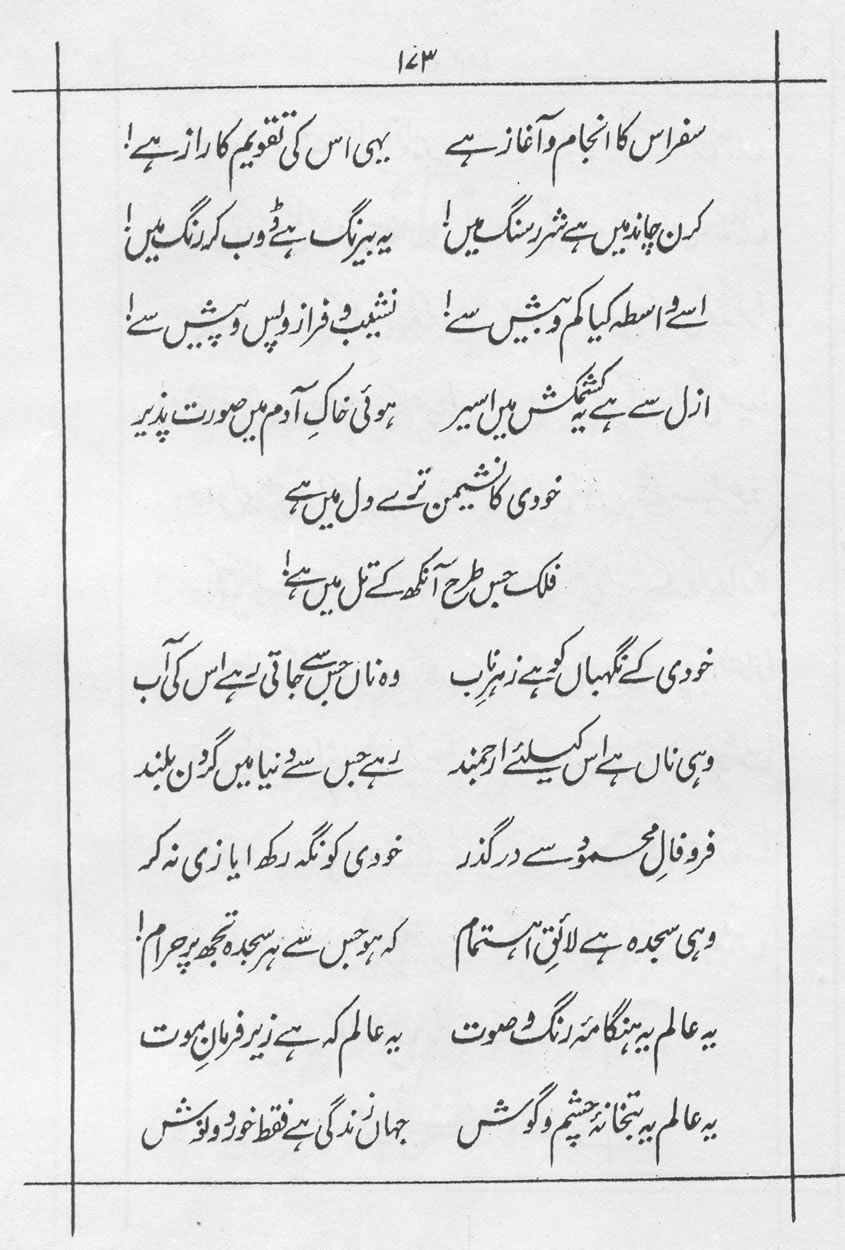 ۱۷۳
سفر اس کا انجام و آغاز ہے یہی اس کی تقویم کا راز ہے!
کرن چاند میں ہے شرر سنگ میں! یہ بیرنگ ہے ڈوب کر رنگ میں!
اسے واسطہ کیا کم و بیش سے! نشیب و فراز و پس و پیش سے!
ازل سے ہے یہ کشمکش میں اسیر ہوئی خاکِ آدم میں صورت پذیر
خودی کا نشیمن ترے دل میں ہے
فلک جس طرح آنکھ کے تل میں ہے!
خودی کے نگہباں کو ہے زہرِ ناب وہ ناں جس سے جاتی رہے اس کی آب
وہی ناں ہے اس کیلئے ارجمند رہے جس سے دنیا میں گردن بلند
فروفالِ محمود سے درگذر خودی کو نگہ رکھ ایازی نہ کر
وہی سجدہ ہے لائقِ اہتمام کہ ہو جس سے ہر سجدہ تجھ پر حرام!
یہ عالم یہ ہنگامۂ رنگ و صوت یہ عالم کہ ہے زیر فرمانِ موت
یہ عالم یہ بتخانۂ چشم و گوش جہاں زندگی ہے فقط خورد و نوش